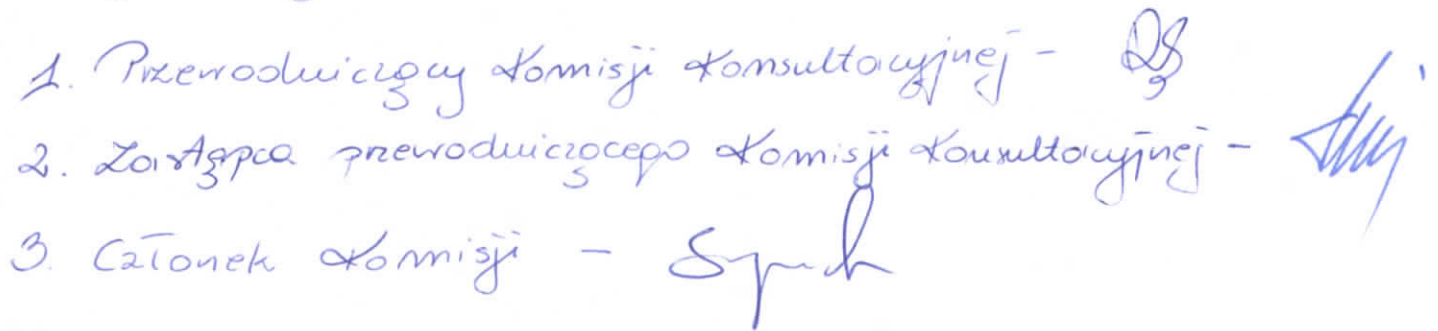 1. Przewodniczący Komisji Konsultacyjnej -
2. Zastępca przewodniczącego Komisji Konsultacyjnej -
3. Członek Komisji -